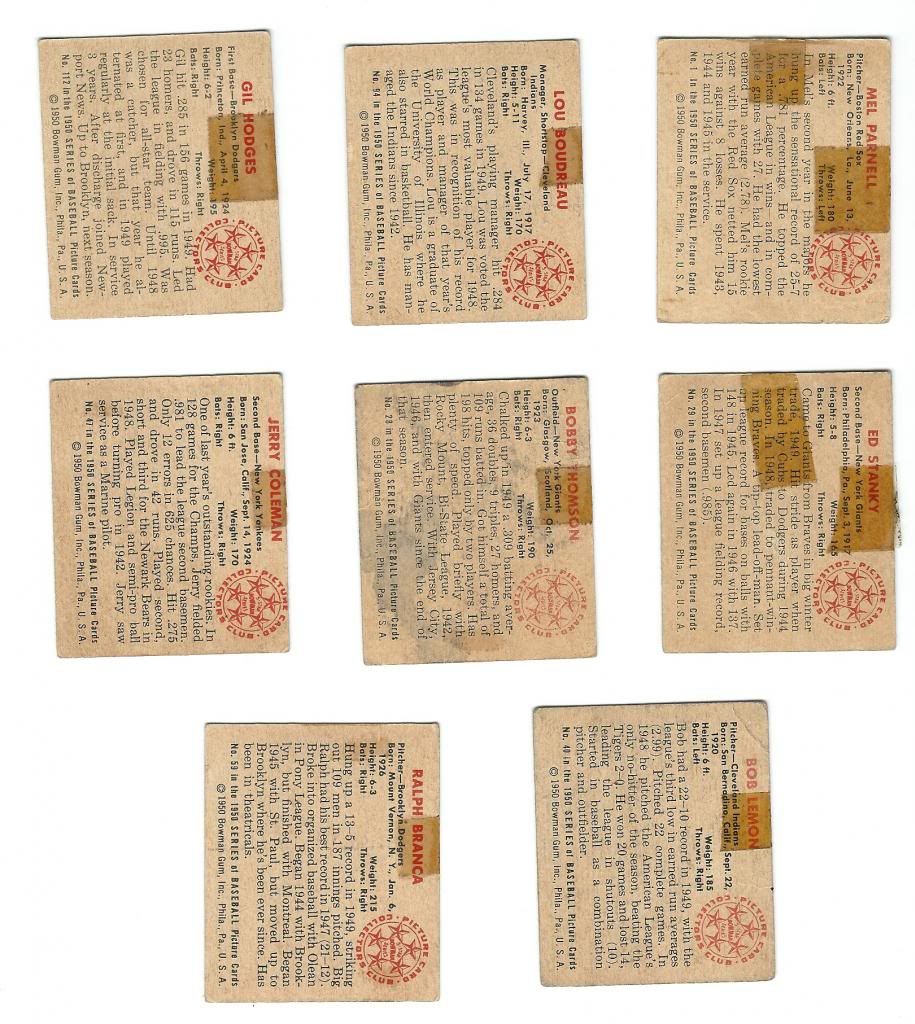 GIL HODGES
First Base—Brooklyn Dodgers
Born: Princeton, Ind., April 4, 1924
Height: 6-2 Weight: 195
Bats: Right Throws: Right
Gil hit .285 in 156 games in 1949. Had
23 homers, and drove in 115 runs. Led
the league in fielding with .995. Was
chosen for all-star team. Until 1948
was a catcher, but that year he al-
ternated at first, and in 1949 played
regularly at the initial sack. In service
3 years. After discharge joined New-
port News. Up to Brooklyn, next season.
No. 112 in the 1950 SERIES of BASEBALL Picture Cards
© 1950 Bowman Gum, Inc., Phila., Pa., U. S. A.
PICTURE CARD COLLECTORS CLUB
LOU BOUDREAU
Manager, Shortstop—Cleveland
Indians
Born: Harvey, Ill., July 17, 1917
Height: 5-11 Weight: 176
Bats: Right Throws: Right
Cleveland's playing manager hit .284
in 134 games in 1949. Lou was voted the
league's most valuable player for 1948.
This was in recognition of his record
as player and manager of that year's
World Champions. Lou is a graduate of
the University of Illinois where he
also starred in basketball. He has man-
aged the Indians since 1942.
No. 94 in the 1950 SERIES of BASEBALL Picture Cards
© 1950 Bowman Gum, Inc., Phila., Pa., U. S. A.
PICTURE CARD COLLECTORS CLUB
MEL PARNELL
Pitcher—Boston Red Sox
Born: New Orleans, La., June 13,
1922
Height: 6 ft. Weight: 180
Bats: Left Throws: Left
In Mel's second year in the majors he
hung up the sensational record of 25-7
for a .781 percentage. He topped the
American League in wins and in com-
plete games with 27. He had the lowest
earned run average, 2.78. Mel's rookie
year with the Red Sox netted him 15
wins against 8 losses. He spent 1943,
1944 and 1945 in the service.
No. 1 in the 1950 SERIES of BASEBALL Picture Cards
© 1950 Bowman Gum, Inc., Phila., Pa., U. S. A.
PICTURE CARD COLLECTORS CLUB
JERRY COLEMAN
Second Base—New York Yankees
Born: San Jose, Calif., Sept. 14, 1924
Height: 6 ft. Weight: 170
Bats: Right Throws: Right
One of last year's outstanding rookies. In
128 games for the Champs, Jerry fielded
.981 to lead the league second basemen.
Only 12 errors in 628 chances. Hit .275
and drove in 42 runs. Played second,
short and third for the Newark Bears in
1948. Played Legion and semi-pro ball
before turning pro in 1942. Jerry saw
service as a Marine pilot.
No. 47 in the 1950 SERIES of BASEBALL Picture Cards
© 1950 Bowman Gum, Inc., Phila., Pa., U. S. A.
PICTURE CARD COLLECTORS CLUB
BOBBY THOMSON
Outfield—New York Giants
Born: Glasgow, Scotland, Oct. 25,
1923
Height: 6-3 Weight: 190
Bats: Right Throws: Right
Chalked up in 1949 a .309 batting aver-
age, 36 doubles, 9 triples, 27 homers, and
109 runs batted in. Got himself a total of
198 hits, topped only by two players. Has
plenty of speed. Played briefly with
Rocky Mount, Bi-State League, 1942,
then entered service. With Jersey City,
1946, and with Giants since the end of
that season.
No. 28 in the 1950 SERIES of BASEBALL Picture Cards
© 1950 Bowman Gum, Inc., Phila., Pa., U. S. A.
PICTURE CARD COLLECTORS CLUB
ED STANKY
Second Base—New York Giants
Born: Philadelphia, Pa., Sept. 3, 1917
Height: 5-8 Weight: 165
Bats: Right Throws: Right
Came to Giants from Braves in big winter
trade, 1949. Hit stride as player when
traded by Cubs to Dodgers during 1944
season. In 1948, traded to pennant-win-
ning Braves. A top-top lead-off man. Set
up league record for bases on balls with
148 in 1945. Led again in 1946 with 137.
In 1947 set up a league fielding record,
second basemen (.985).
No. 29 in the 1950 SERIES of BASEBALL Picture Cards
© 1950 Bowman Gum, Inc., Phila., Pa., U. S. A.
PICTURE CARD COLLECTORS CLUB
RALPH BRANCA
Pitcher—Brooklyn Dodgers
Born: Mount Vernon, N. Y., Jan. 6,
1926
Height: 6-3 Weight: 215
Bats: Right Throws: Right
Hung up a 13-5 record in 1949, striking
out 109 men in 187 innings pitched. Big
Ralph had his best record in 1947 (21-12).
Broke into organized baseball with Olean
in Pony League. Began 1944 with Brook-
lyn, but finished with Montreal. Began
1945 with St. Paul, but moved up to
Brooklyn where he's been ever since. Has
been in theatricals.
No. 59 in the 1950 SERIES of BASEBALL Picture Cards
© 1950 Bowman Gum, Inc., Phila., Pa., U. S. A.
PICTURE CARD COLLECTORS CLUB
BOB LEMON
Pitcher—Cleveland Indians
Born: San Bernadino, Calif., Sept. 22,
1920
Height: 6 ft. Weight: 185
Bats: Left Throws: Right
Bob had a 22-10 record in 1949, with the
league's third low in earned run averages
(2.99). Pitched 22 complete games. In
1948 he pitched the American League's
only no-hitter of the season, beating the
Tigers 2-0. He won 20 games and lost 14,
leading the league in shutouts (10).
Started in baseball as a combination
pitcher and outfielder.
No. 40 in the 1950 SERIES of BASEBALL Picture Cards
© 1950 Bowman Gum, Inc., Phila., Pa., U. S. A.
PICTURE CARD COLLECTORS CLUB